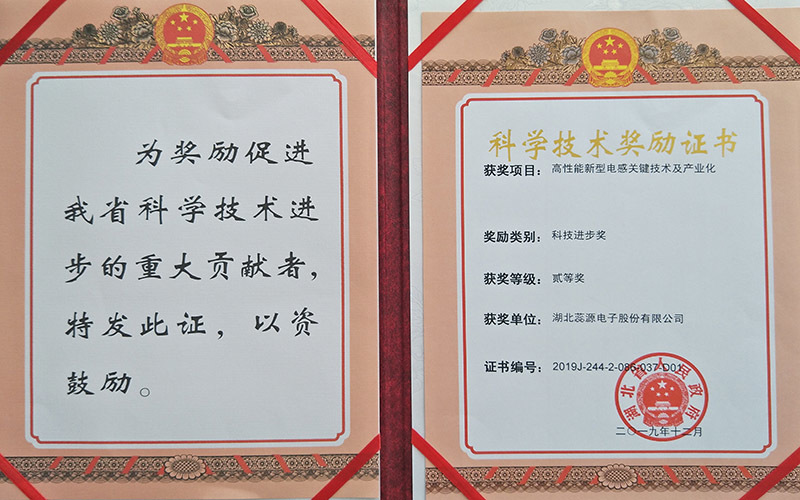 为奖励促进
我省科学技术进
步的重大贡献者，
特发此证，以资
鼓励。
科学技术奖励证书
获奖项目：高性能新型电感关键技术及产业化
奖励类别：科技进步奖
获奖等级：贰等奖
获奖单位：湖北蕊源电子股份有限公司
证书编号：2019J-244-2-085-037-D01
湖北省人民政府
二〇一九年十二月